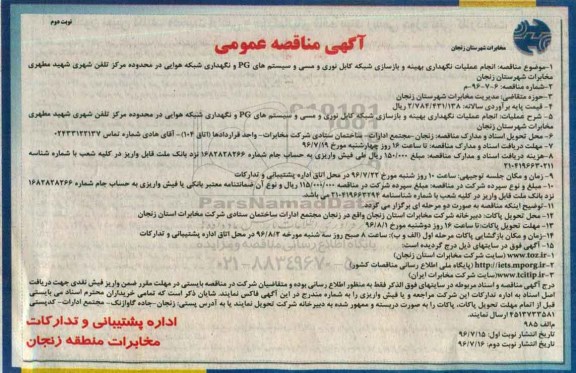 نوبت دوم
آگهی مناقصه عمومی
مخابرات شهرستان زنجان
۱-موضوع مناقصه: انجام عملیات نگهداری بهینه و بازسازی شبکه کابل نوری و مسی و سیستم های PG و نگهداری شبکه هوایی در محدوده مرکز تلفن شهری شهید مطهری
مخابرات شهرستان زنجان
۲-شماره مناقصه: ۶-۷-۹۶-م
۳-حوزه متقاضی: مدیریت مخابرات شهرستان زنجان
۴- قیمت پایه برآوردی سالانه: ۲/۷۸۴/۴۳۱/۱۳۸ ریال
۵- شرح عملیات: انجام عملیات نگهداری بهینه و بازسازی شبکه کابل نوری و مسی و سیستم های PG و نگهداری شبکه هوایی در محدوده مرکز تلفن شهری شهید مطهری
مخابرات شهرستان زنجان
۶- محل تحویل اسناد و مدارک مناقصه: زنجان -مجتمع ادارات- ساختمان ستادی شرکت مخابرات- واحد قراردادها (اتاق ۱۰۴)- آقای هادی شماره تماس ۰۲۴۳۳۱۲۲۱۳۷
۷- مهلت دریافت اسناد و مدارک مناقصه: تا ساعت ۱۶ روز چهارشنبه مورخ ۹۶/۷/۱۹
۸-هزینه دریافت اسناد و مدارک مناقصه: مبلغ ۱۵۰/۰۰۰ ریال طی فیش واریزی به حساب جام شماره ۱۶۸۲۸۲۸۲۶۶ نزد بانک ملت قابل واریز در کلیه شعب با شماره شناسه
۲۱۰۴۱۹۶۶۳۰۲۱۱
۹- زمان و مکان جلسه توجیهی: ساعت ۱۰ روز شنبه مورخ ۹۶/۷/۲۲ در محل اتاق اداره پشتیبانی و تدارکات
۱۰- مبلغ و نوع سپرده شرکت در مناقصه: مبلغ سپرده شرکت در مناقصه ۱۱۵/۰۰۰/۰۰۰ ریال و نوع آن ضمانتنامه معتبر بانکی یا فیش واریزی به حساب جام شماره ۱۶۸۲۸۲۸۲۶۶
نزد بانک ملت قابل واریز در کلیه شعب با شماره شناسنامه ۲۱۰۴۱۹۶۶۳۲۹۴ می باشد.
۱۱- توضیح اینکه مناقصه به صورت دو مرحله ای برگزار می گردد.
۱۲- محل تحویل پاکات: دبیرخانه شرکت مخابرات استان زنجان واقع در زنجان مجتمع ادارات ساختمان ستادی شرکت مخابرات استان زنجان
۱۳- مهلت تحویل پاکات:تا ساعت ۱۶ روز دوشنبه مورخ ۹۶/۸/۱
۱۴- زمان و مکان بازگشایی پاکات مرحله اول (الف و ب): ساعت ۸ صبح روز سه شنبه مورخه ۹۶/۸/۲ در محل اتاق اداره پشتیبانی و تدارکات
۱۵- آگهی فوق در سایتهای ذیل درج گردیده است:
۱-www.toz.ir (سایت شرکت مخابرات استان زنجان)
۲-http://iets.mporg.ir (پایگاه ملی اطلاع رسانی مناقصات کشور)
۳-www.tcitip.ir(سایت شرکت مخابرات ایران)
درج آگهی مناقصه و اسناد مربوطه در سایتهای فوق الذکر فقط به منظور اطلاع رسانی بوده و متقاضیان شرکت در مناقصه بایستی در مهلت مقرر ضمن واریز فیش نقدی جهت دریافت
اصل اسناد به اداره تدارکات این شرکت مراجعه و یا فیش واریزی را به شماره مندرج در این آگهی فاکس نمایند. شایان ذکر است که تمامی خریداران محترم اسناد می بایستی
قبل از اتمام مهلت تحویل پاکات، پاکات را به صورت دربسته و ممهور شده به دبیرخانه شرکت تحویل نمایند یا به آدرس پستی: زنجان -جاده گاوازنگ- مجتمع ادارات- کدپستی
۴۵۱۳۷۳۳۵۸۱ ارسال نمایند.
م الف ۹۸۵
تاریخ انتشار نوبت اول: ۹۶/۷/۱۵
تاریخ انتشار نوبت دوم: ۹۶/۷/۱۶
اداره پشتیبانی و تدارکات
مخابرات منطقه زنجان
ParsNamadData
پایگاه اطلاع رسانی مناقصه و مزایده
۰۲۱-۸۸۳۴۹۶۷۰